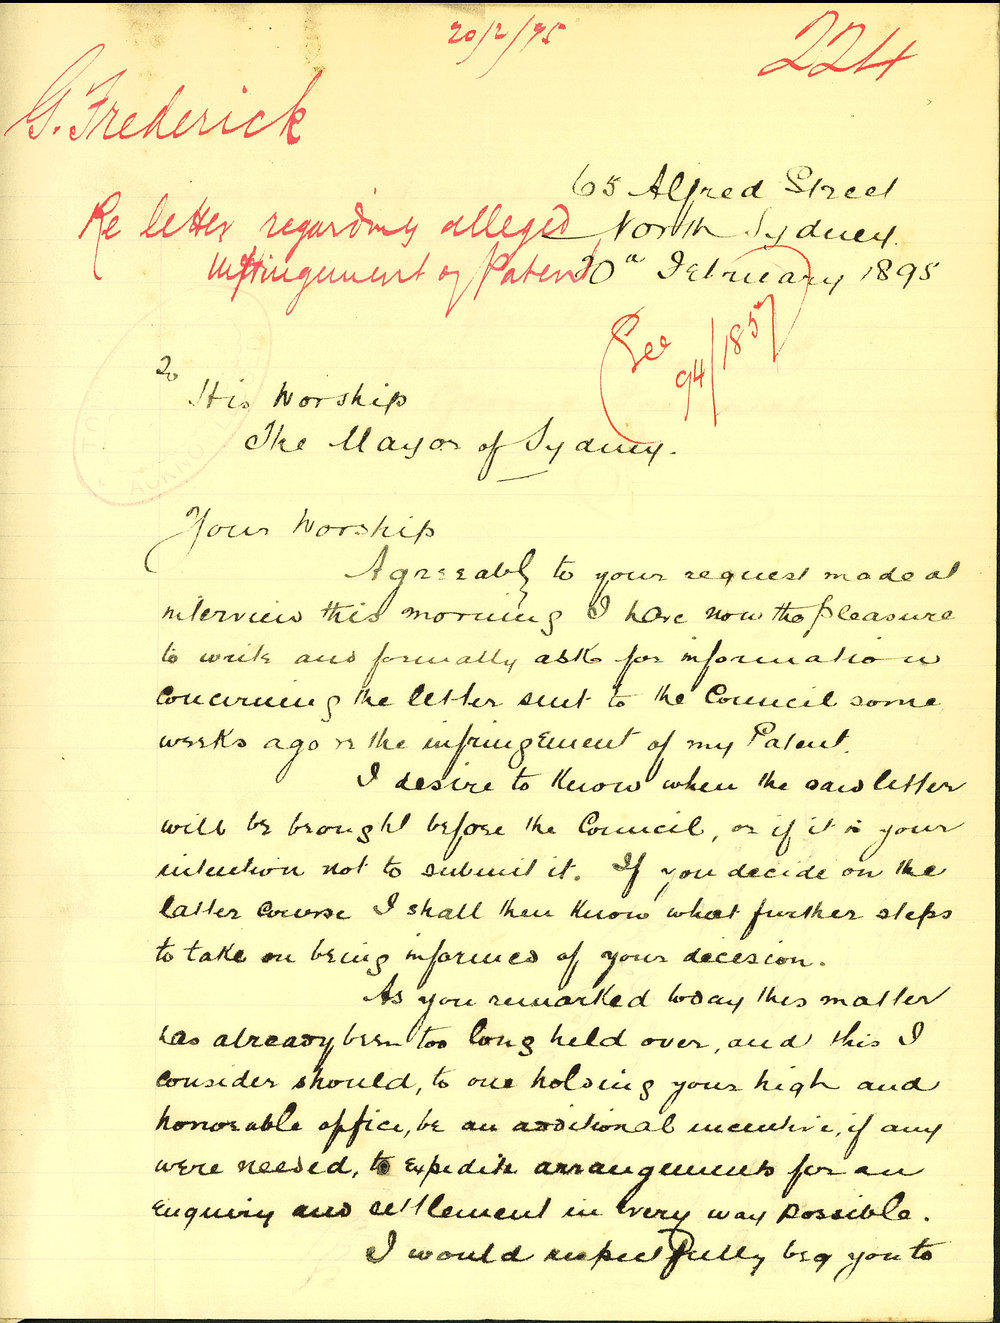 20/2/95
224
G. Frederick
65 Alfred Street
North Sydney.
20th February 1895
Re letter regarding alleged
infringement of Patent
See
94/1857
To
His Worship
The Mayor of Sydney.
Your Worship
Agreeably to your request made at
interview this morning I have now the pleasure
to write and formally ask for information
concerning the letter sent to the Council some
weeks ago re the infringement of my Patent.
I desire to know when the said letter
will be brought before the Council, or if it is your
intention not to submit it. If you decide on the
latter course I shall then know what further steps
to take on being informed of your decision.
As you remarked today this matter
has already been too long held over, and this I
consider should, to one holding your high and
honorable office, be an additional incentive, if any
were needed, to expedite arrangements for an
enquiry and settlement in every way possible.
I would respectfully beg you to